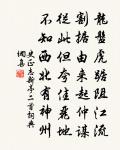 龍盤虎踞阻江流
割據由來起仲謀
從此但夸佳麗地
不知西北有神州
史正志新亭二首詞典
網